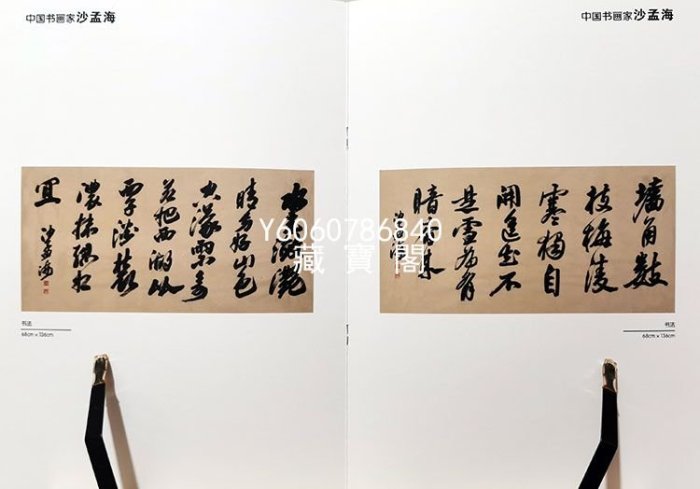 中国书画家沙孟海
水光瀲灩
晴方好山色
空濛雨亦奇
若把西湖比
西子淡裝
濃抹總相
宜
沙孟海
书法
68cm x 136cm
中国书画家沙孟海
墻角數
枝梅凌
寒獨自
開遥知不
是雪為有
暗香來
沙孟海
书法
68cm x 136cm
Y6060786840
藏寶閣